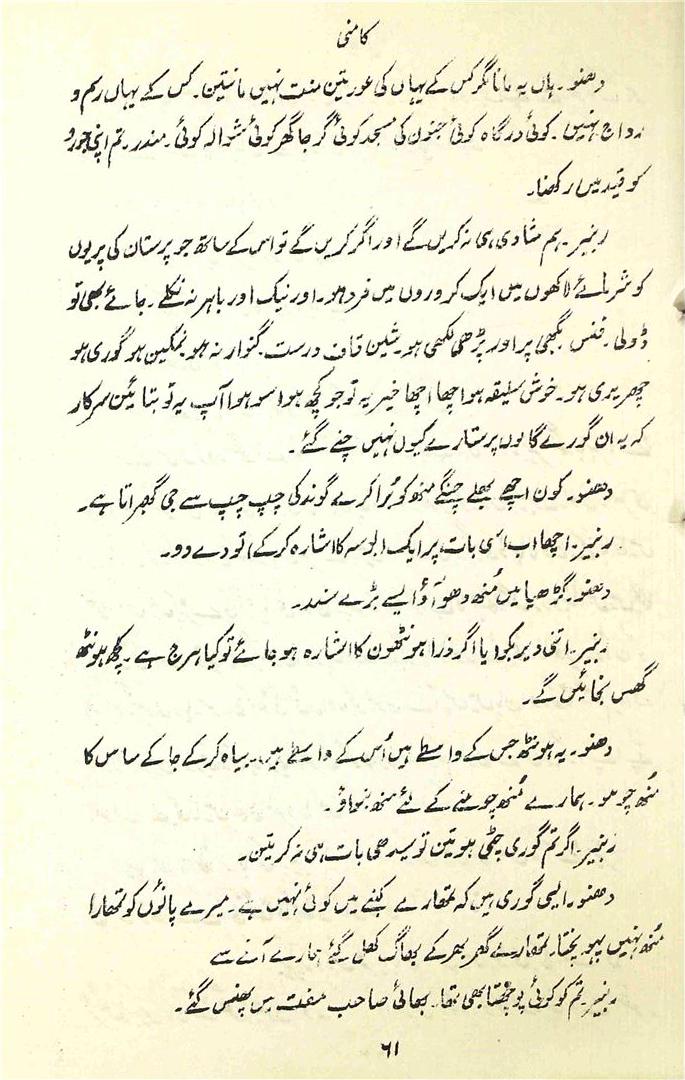 کامنی
دھنو۔ ہاں یہ مانا مگر کس کے یہاں کی عورتیں منت نہیں مانتین۔ کس کے یہاں رسم و
رواج نہیں۔ کوئی درگاہ کوئی جنون کی مسجد کوئی گرجا گھر کوئی شوالہ کوئی۔ مندر۔ تم اپنی جورو
کو قید میں رکھنا۔
رنبیر۔ ہم شادی ہی نہ کریں گے اور اگر کریں گے تو اس کے ساتھ جو پرستان کی پریوں
کو شرمائے لاکھوں میں ایک کروروں میں فرد ہو۔ اور نیک اور باہر نہ نکلے۔ جائے بھی تو
ڈولی۔ فنس بگھی پر اور پڑھی لکھی ہو۔ شین قاف درست۔ گنوار نہ ہو نمکین ہو گوری ہو
چھریری ہو۔ خوش سلیقہ ہو اچھا اچھا خیر یہ تو جو کچھ ہوا سو ہوا آپ یہ تو بتائیں سرکار
کہ یہ ان گورے گالوں پر ستارے کیوں نہیں چنے گئے۔
دھنو۔ کون اچھے بھلے چنگے منھ کو بُرا کرے گوند کی چپ چپ سے جی گھبراتا ہے۔
رنبیر۔ اچھا اب اسی بات پر ایک (بوسہ کا اشارہ کر کے) تو دے دو۔
دھنو۔ گڑھیا میں مُنھ دھو آؤ ایسے بڑے سند۔
رنبیر۔ اتنی دیر بکوایا اگر ذرا ہونٹھون کا اشارہ ہو جائے تو کیا ہرج ہے۔ کچھ ہونٹھ
گھس نجائیں گے۔
دھنو۔ یہ ہونٹھ جس کے واسطے ہیں اُس کے واسطے ہیں۔ بیاہ کر کے جا کے ساس کا
مُنھ چومو۔ ہمارے مُنھ چومنے کے لئے منھ بنواؤ۔
رنبیر۔ اگر تم گوری چٹی ہوتین تو سیدھی بات ہی نہ کرتین۔
دھنو۔ ایسی گوری ہیں کہ تمھارے کنبے میں کوئی نہیں ہے۔ میرے پانؤں کو تمھارا
مُنھ نہیں پہونچتا۔ تمھارے گھر بھر کے بھاگ کھل گئے ہمارے آنے سے
رنبیر۔ تم کو کوئی پوچھتا بھی تھا۔ بھائی صاحب مفت میں پھنس گئے۔
۶۱